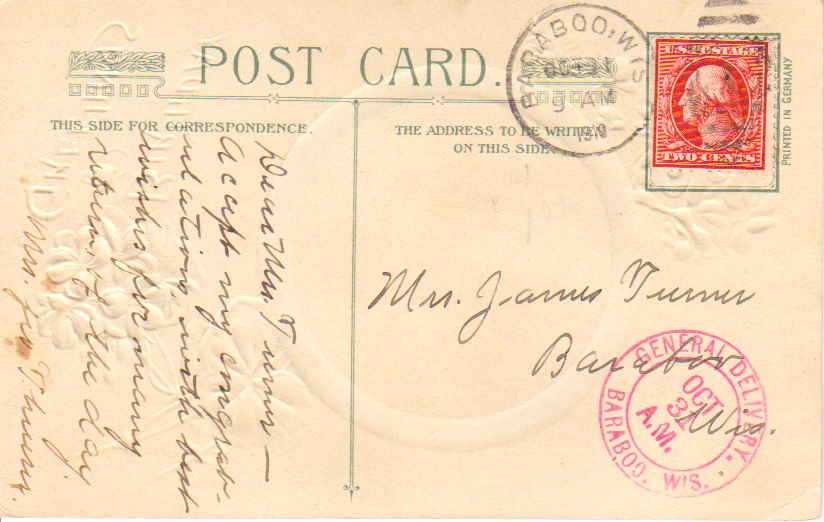 POST CARD.
THIS SIDE FOR CORRESPONDENCE.
THE ADDRESS TO BE WRITTEN
ON THIS SIDE.
BARABOO, WIS
OCT 31
9 AM
U.S. POSTAGE
TWO CENTS
PRINTED IN GERMANY
Dear Mrs. Turner —
Accept my congrat-
ulations, with best
wishes for many
return of the day.
Mrs.
Mrs. James Turner
Baraboo
Wis.
GENERAL DELIVERY.
OCT
31
A.M.
BARABOO. WIS.